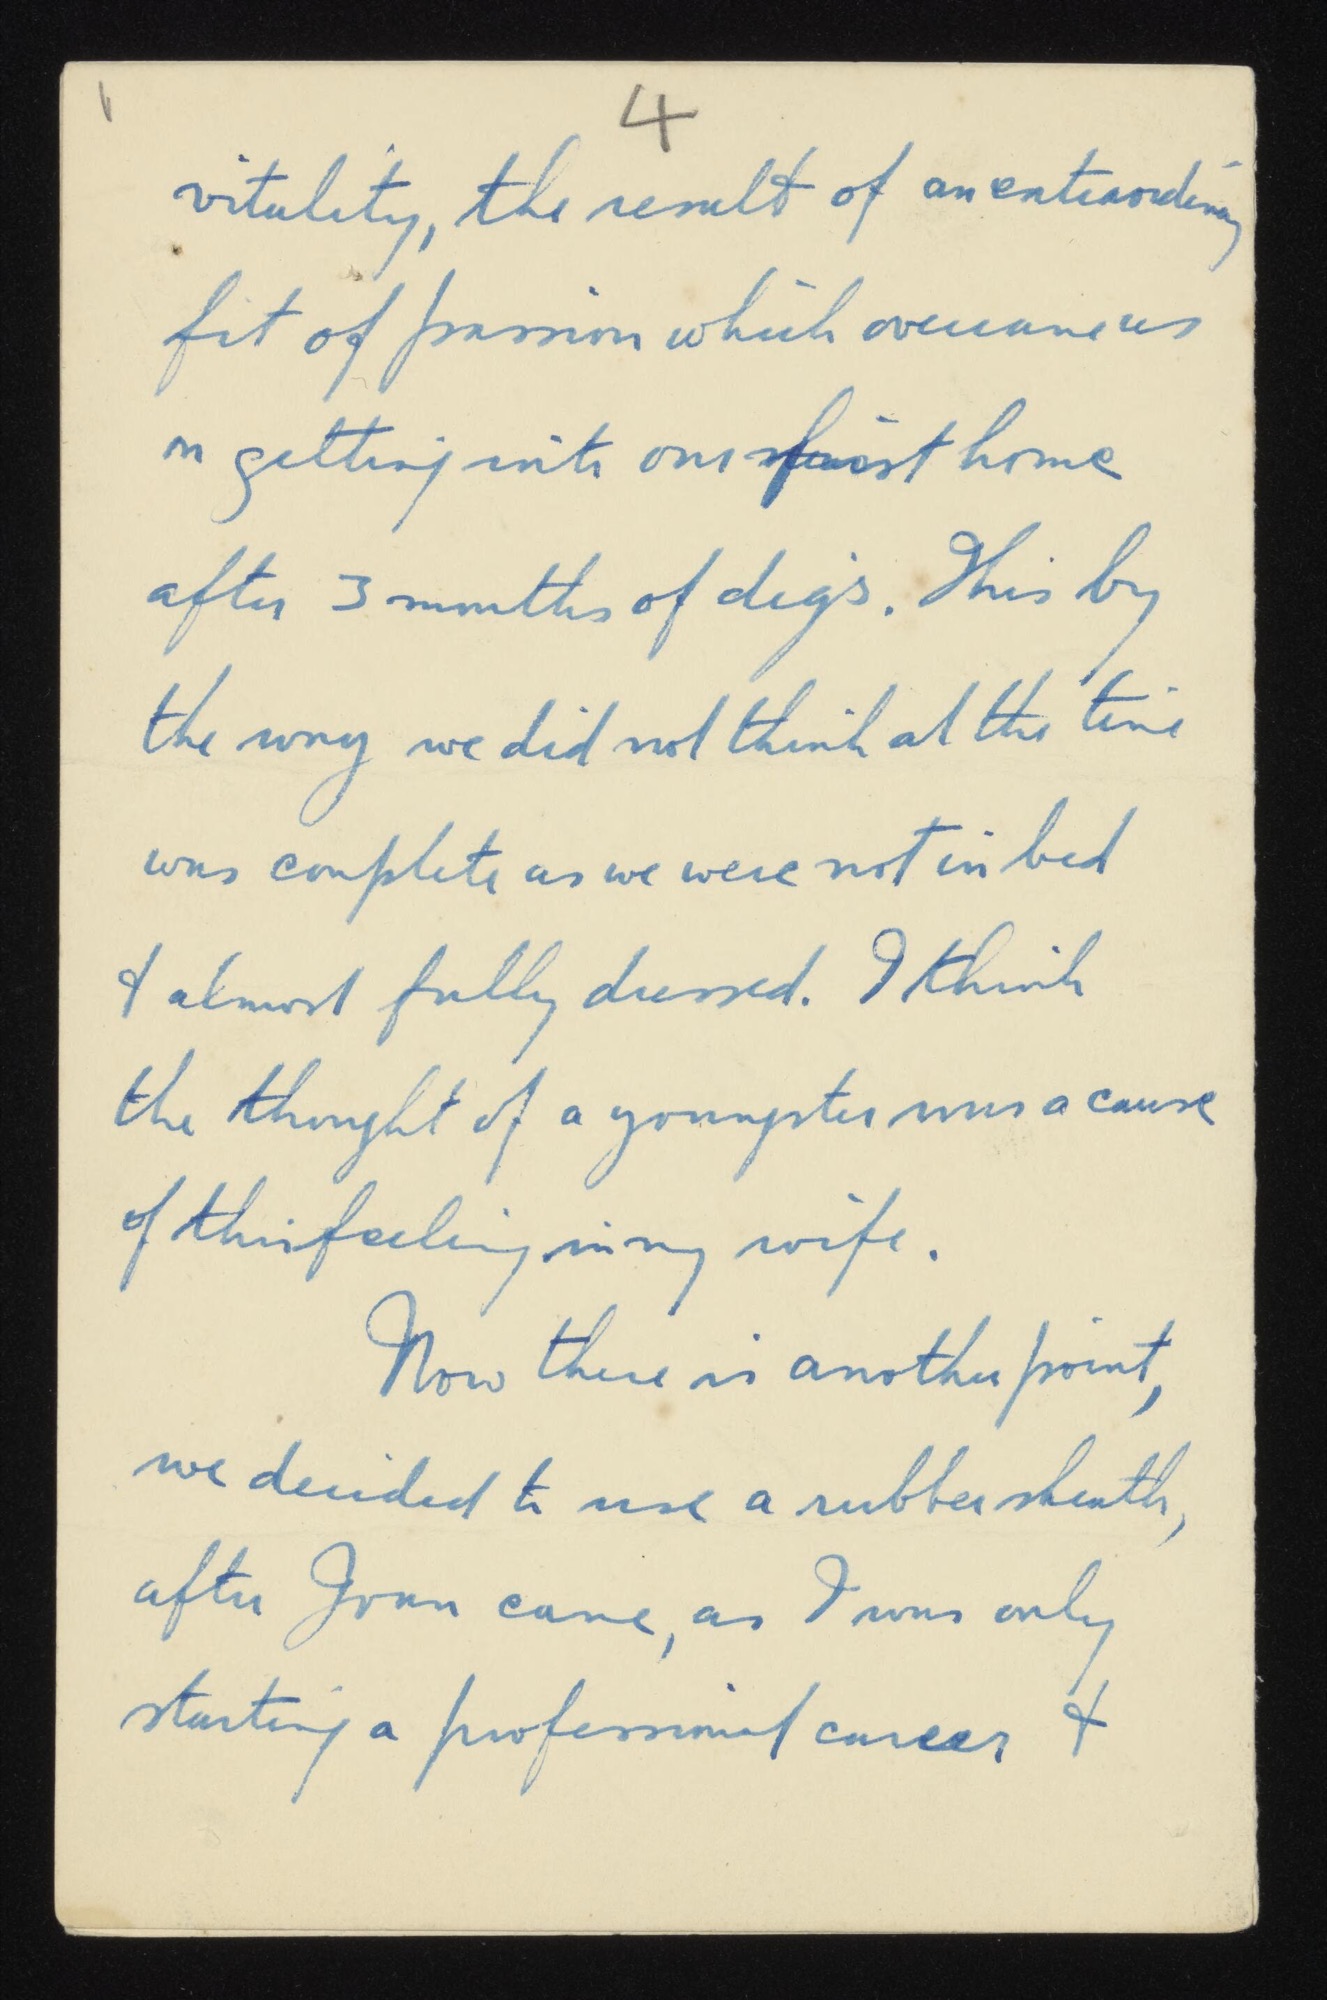 4
vitality, the result of an extraordinary
fit of passion which overcame us
on getting into our first home
after 3 months of digs. This by
the way we did not think at the time
was complete as we were not in bed
& almost fully dressed. I think
the thought of a youngster was a cause
of this feeling in my wife.
Now there is another point,
we decided to use a rubber sheath,
after Joan came, as I was only
starting a professional career &